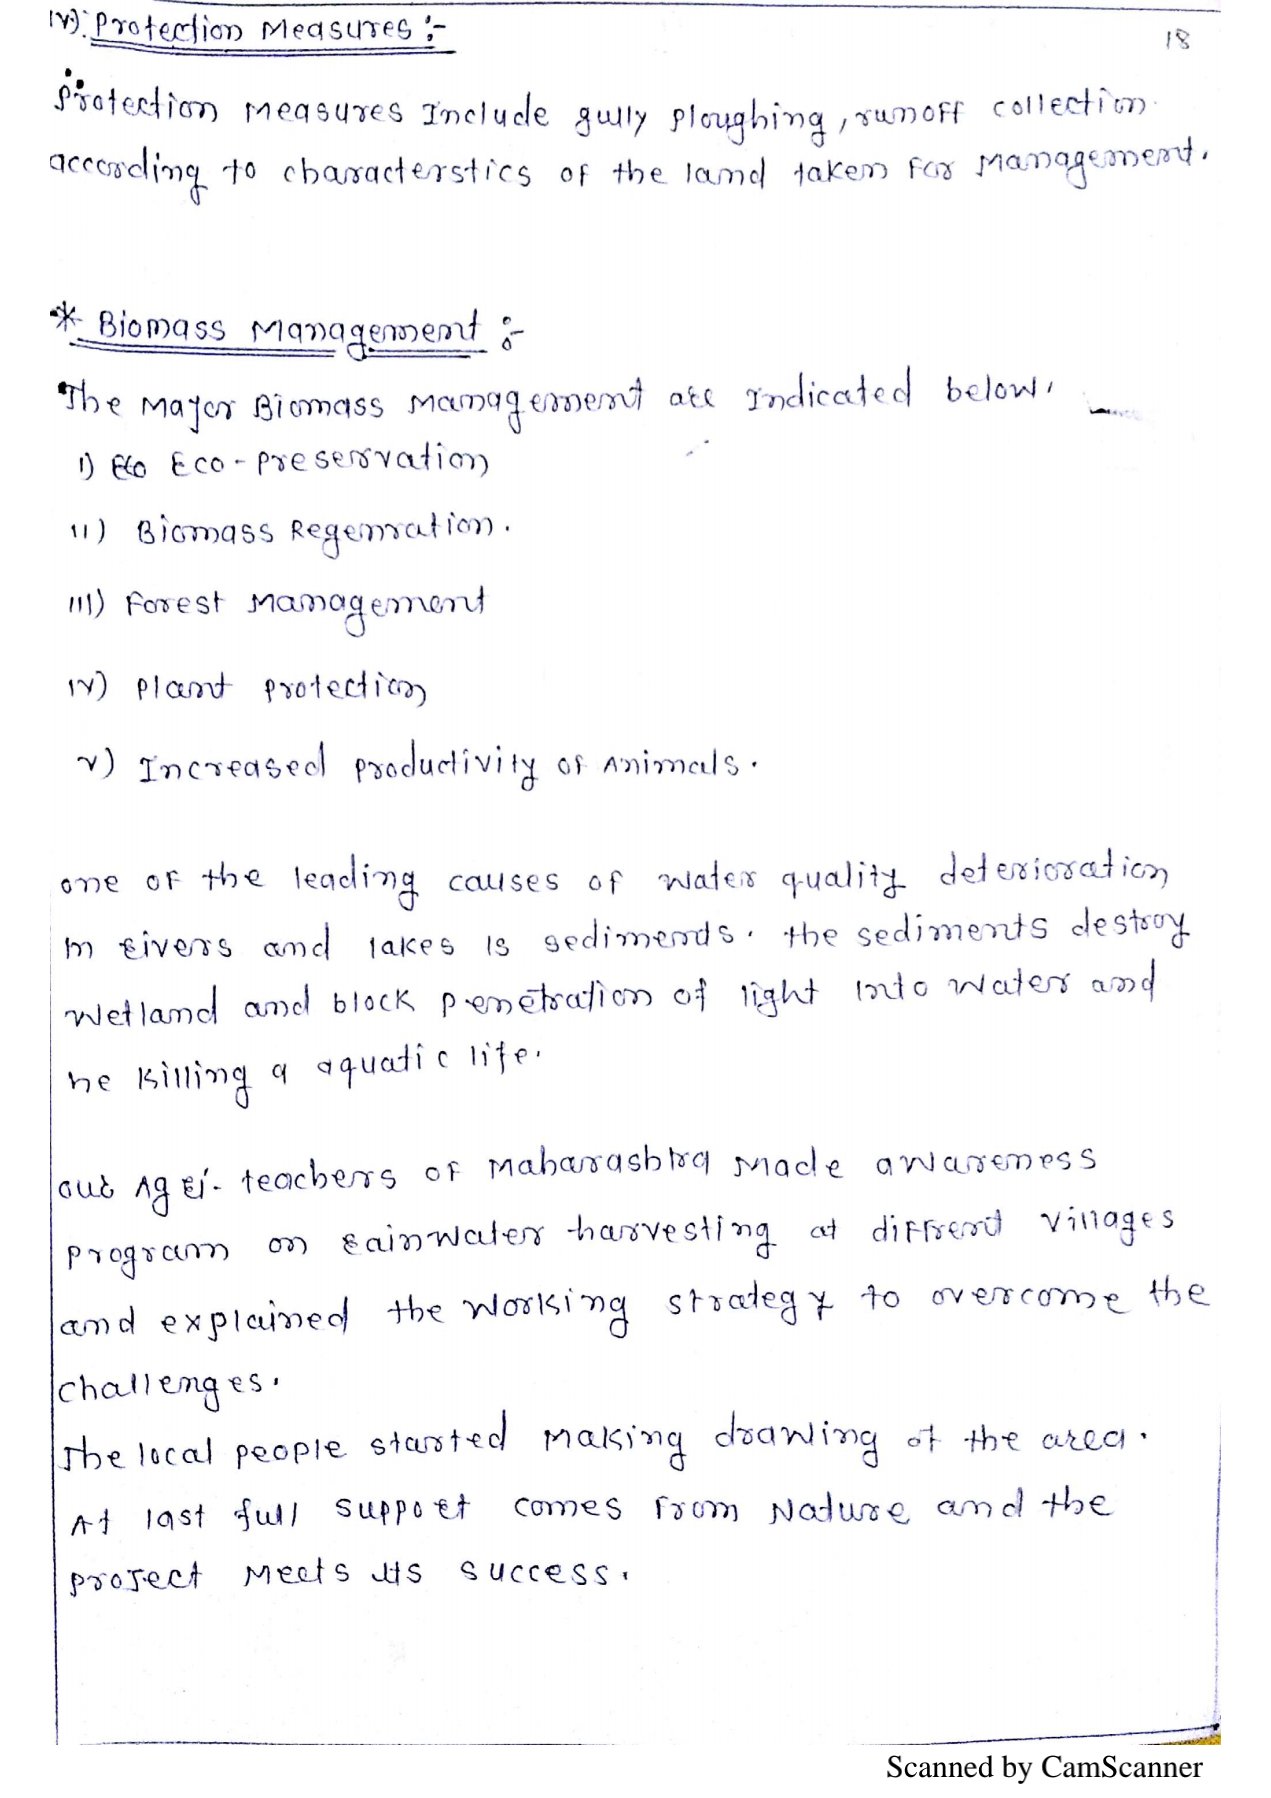 iv) Protection Measures :-
18
Protection Measures Include gully ploughing, runoff collection
according to characterstics of the land taken for Management.
* Biomass Management :-
The Major Biomass Management are Indicated below.
i) Eco Eco-preservation
ii) Biomass Regenration.
iii) Forest Management
iv) plant protection
v) Increased productivity of Animals.
one of the leading causes of water quality deterioration
In rivers and lakes is sediments. the sediments destroy
wetland and block penetration of light into water and
he killing a aquatic life.
our Agri- teachers of Maharashtra Made awareness
program on rainwater harvesting at diffrent villages
and explained the working strategy to overcome the
challenges.
The local people started Making drawing of the area.
At last full support comes from Nature and the
project Meets its success.
Scanned by CamScanner